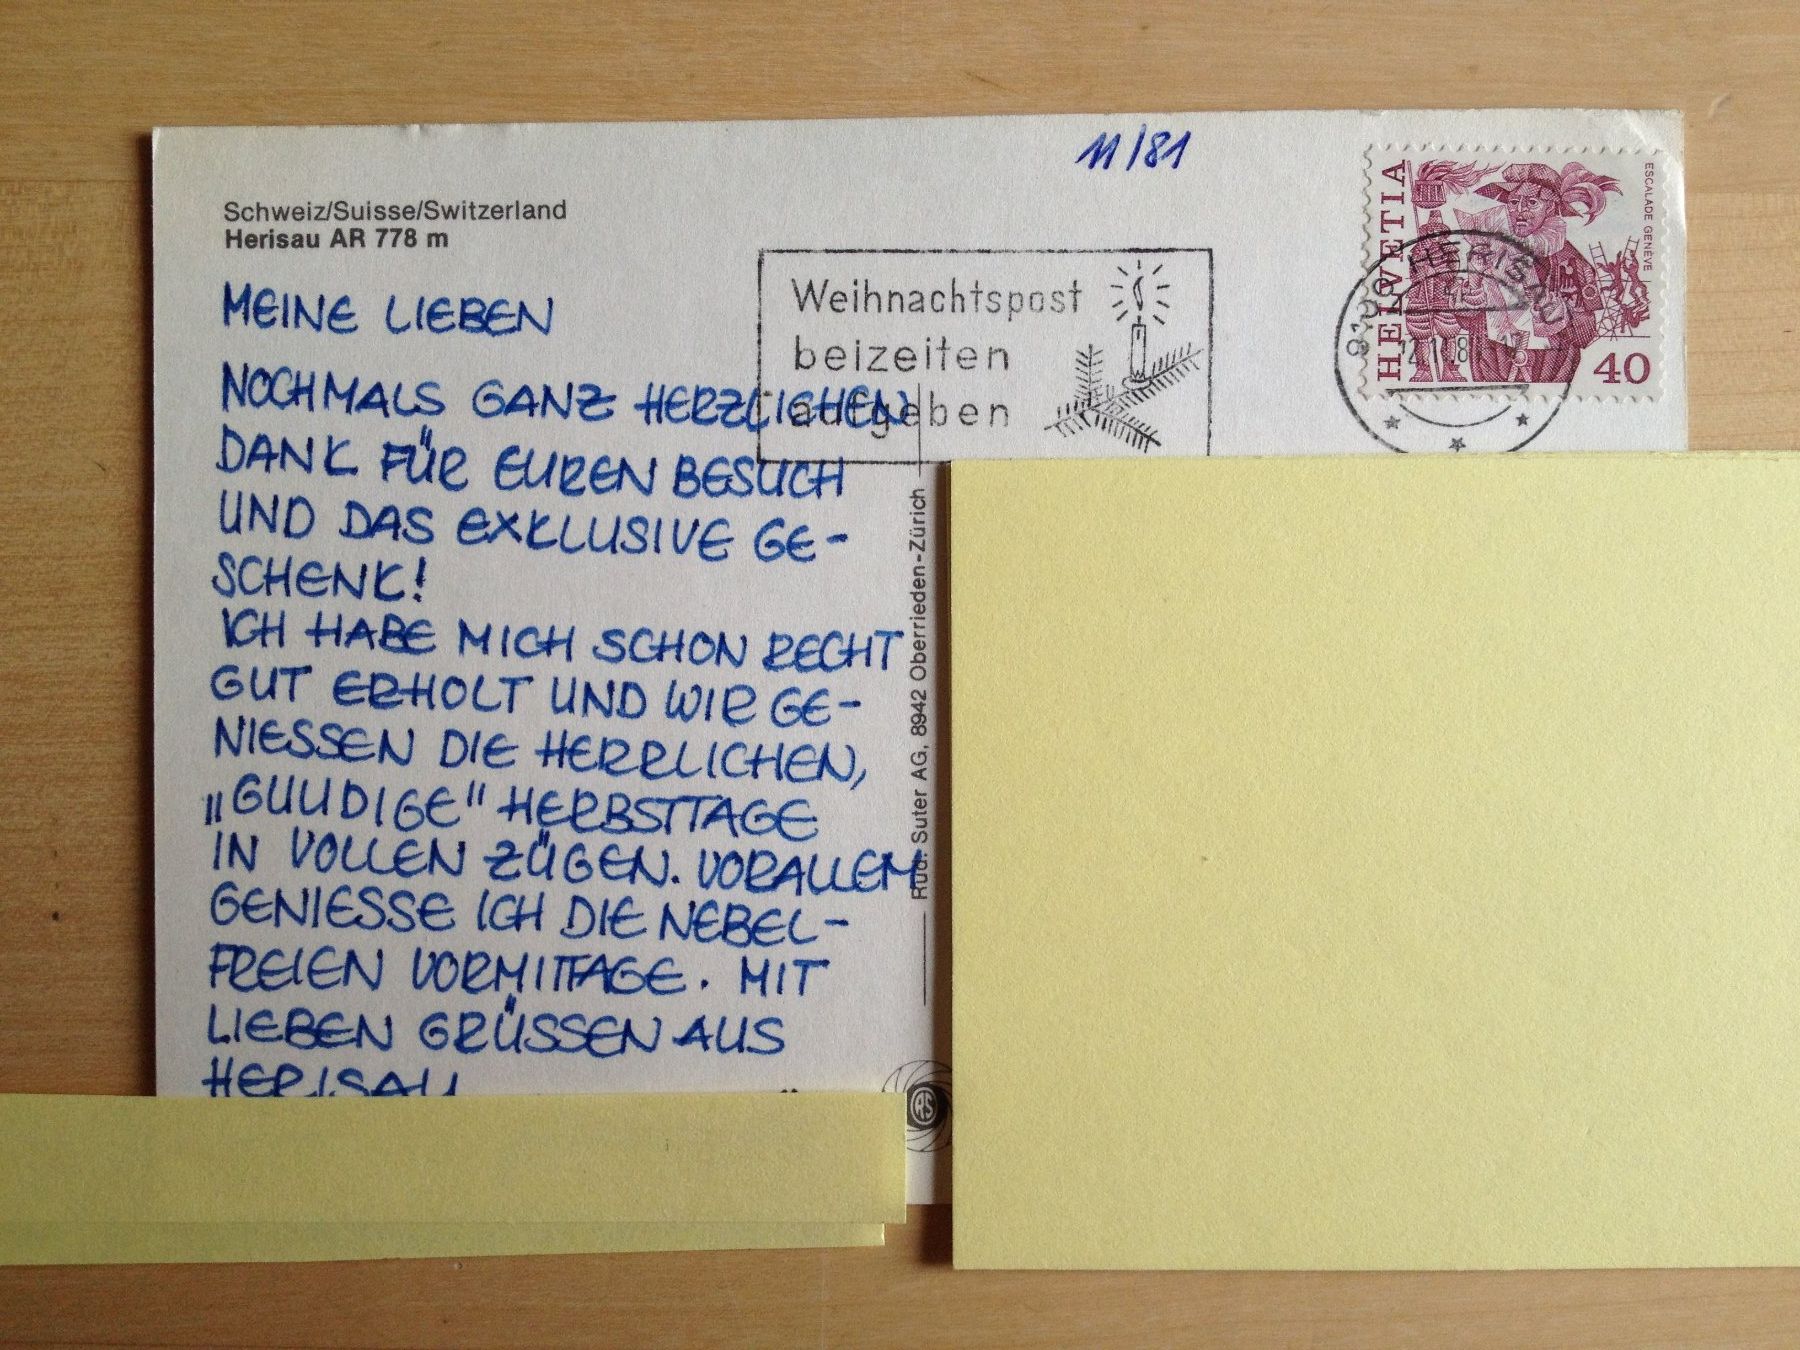 11/81
Schweiz/Suisse/Switzerland
Herisau AR 778 m
HELVETIA
ESCALADE GENÈVE
40
9100 HERISAU
Weihnachtspost
beizeiten
aufgeben
MEINE LIEBEN
NOCHMALS GANZ HERZLICHEN
DANK FÜR EUREN BESUCH
UND DAS EXKLUSIVE GE-
SCHENK!
ICH HABE MICH SCHON RECHT
GUT ERHOLT UND WIR GE-
NIESSEN DIE HERRLICHEN,
„GUUDIGE" HERBSTTAGE
IN VOLLEN ZÜGEN. VORALLEM
GENIESSE ICH DIE NEBEL-
FREIEN VORMITTAGE. MIT
LIEBEN GRÜSSEN AUS
HERISAU
Rud. Suter AG, 8942 Oberrieden-Zürich